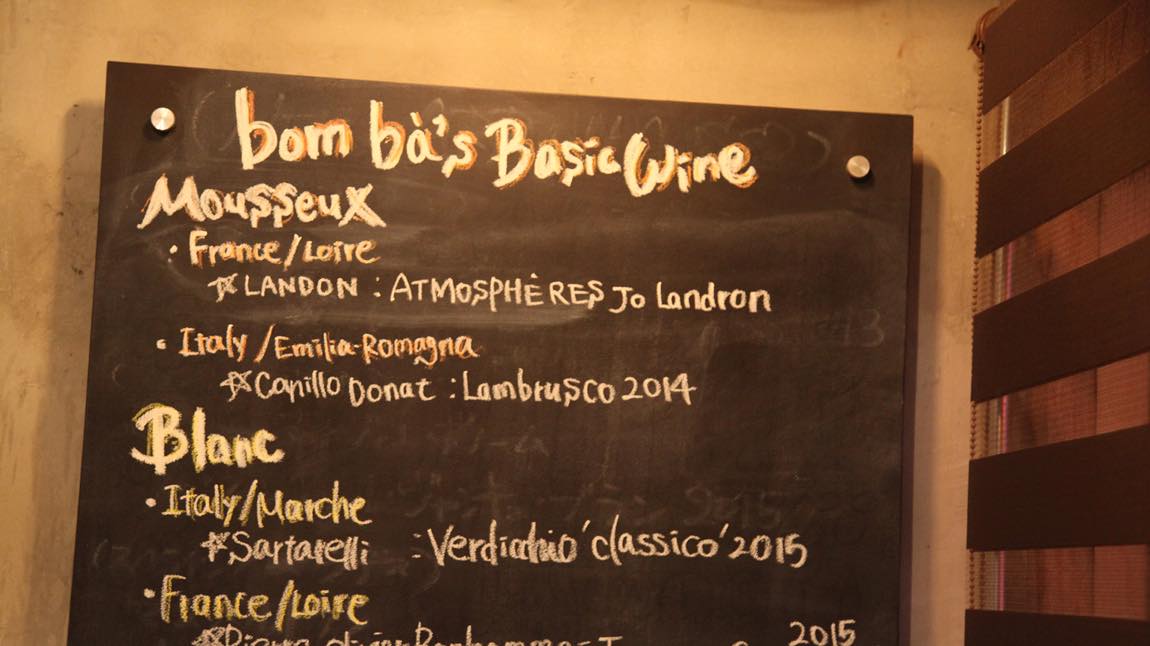 bom bà's Basic Wine
Mousseux
・France/Loire
☆LANDON : ATMOSPHÈRES Jo Landron
・Italy/Emilia-Romagna
☆Capillo Donat : Lambrusco 2014
Blanc
・Italy/Marche
☆Sartarelli : Verdicchio 'classico' 2015
・France/Loire
2015